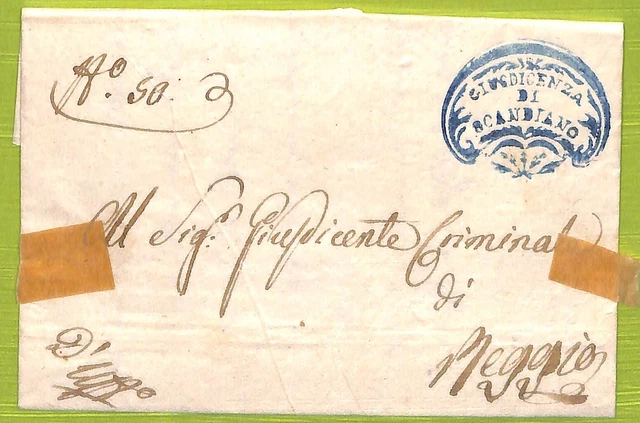 Nº. 50.
GIUSDICENZA
DI
SCANDIANO
Al Sigʳ. Giusdicente Criminal
di
Reggio
D'Uffo